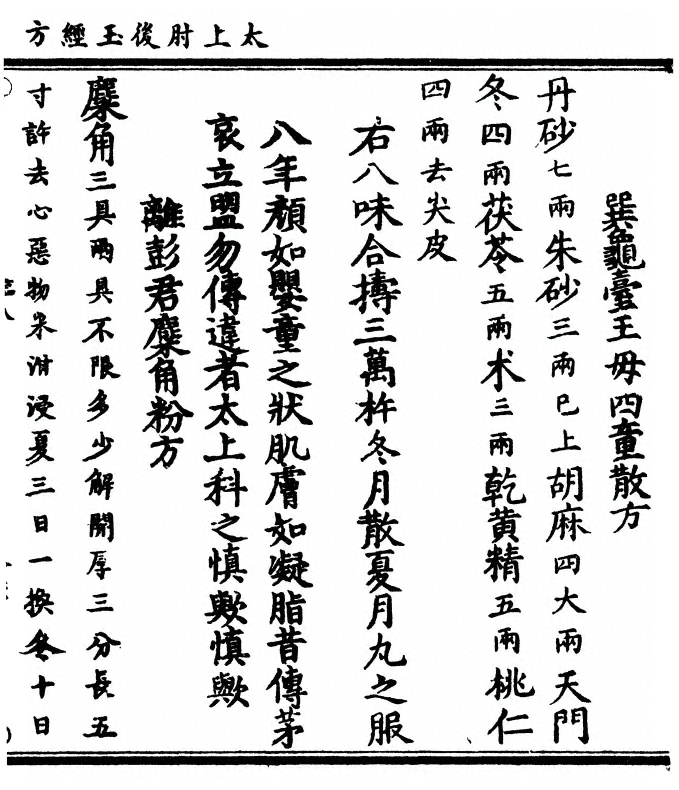 太上肘後玉經方
巽龜臺王母四童散方
丹砂七兩朱砂三兩巳上胡麻四大兩天門
冬四兩茯苓五兩术三兩乾黄精五兩桃仁
四兩去尖皮
右八味合擣三萬杵冬月散夏月丸之服
八年顏如嬰童之狀肌膚如凝脂昔傳茅
哀立盟勿傳違者太上科之慎歟慎歟
離彭君麋角粉方
麋角三具兩具不限多少解開厚三分長五
寸許去心惡物米泔浸夏三日一換冬十日